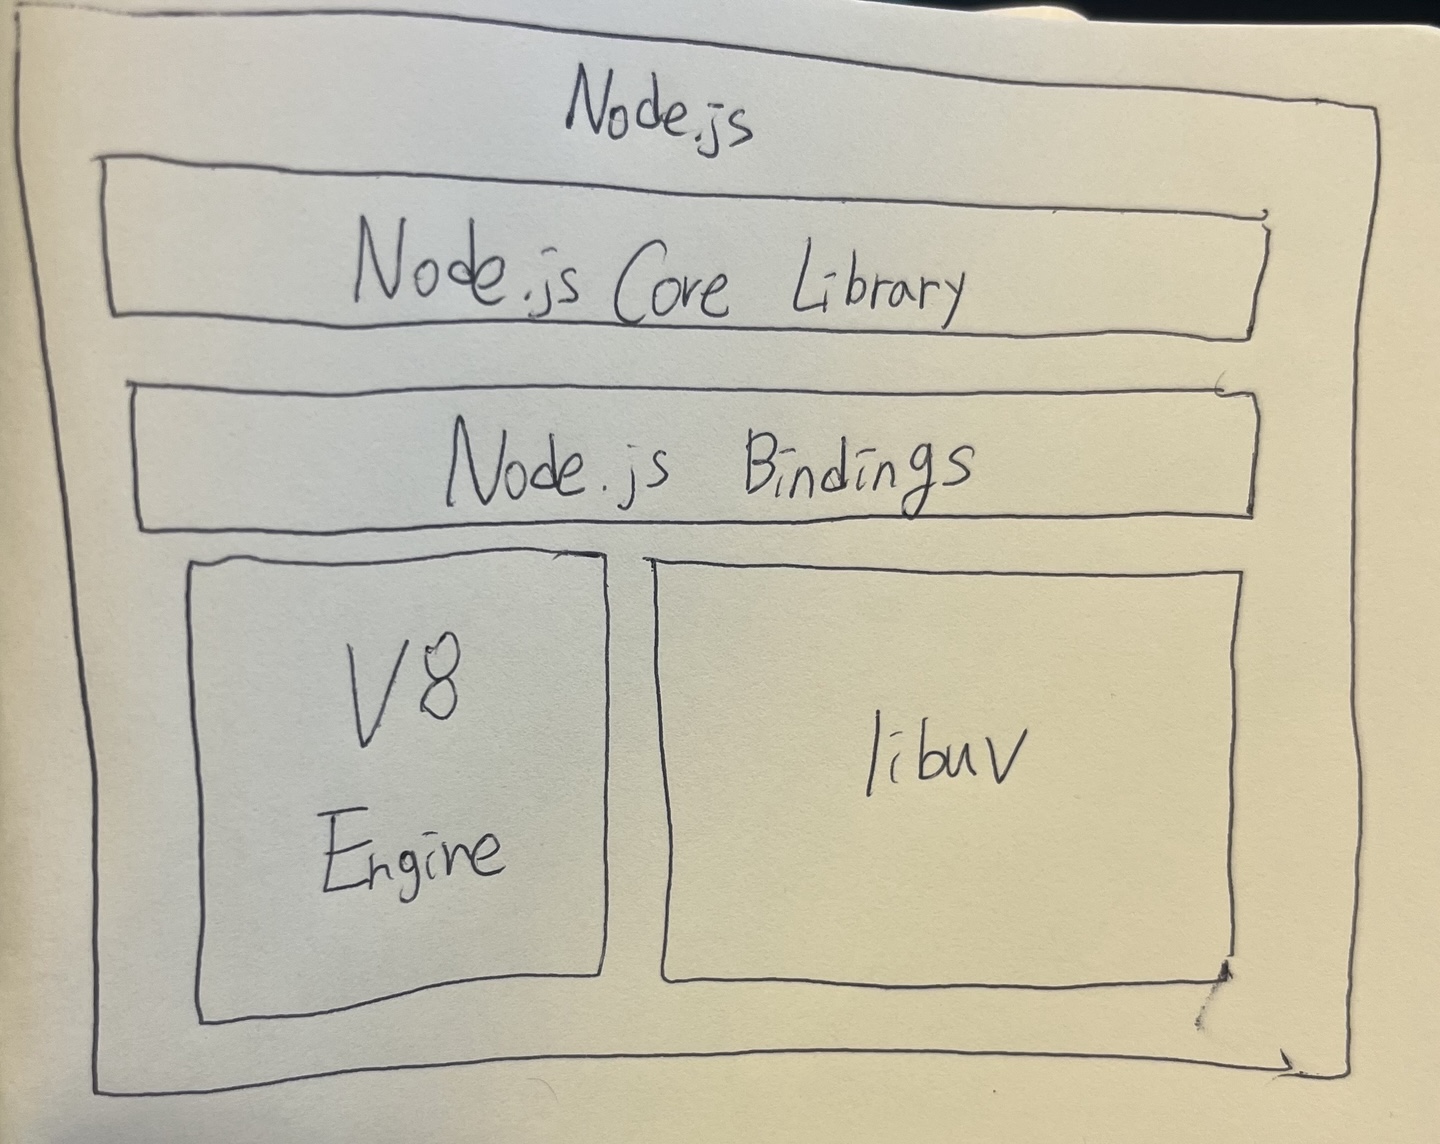 Node.js
Node.js Core Library
Node.js Bindings
V8
Engine
libuv